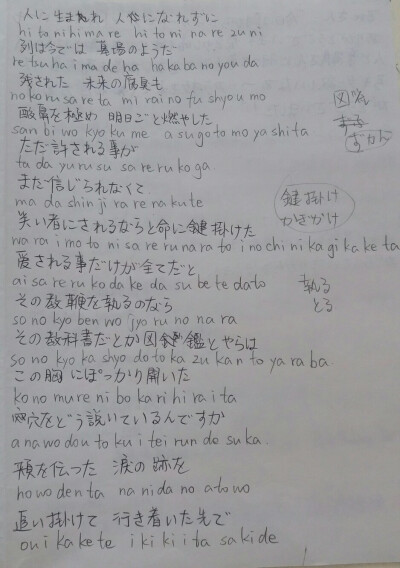 人に生まれ 人になれずに
hi to ni hi ma re hi to ni na re zu ni
列は今では 墓場のようだ
re tsu ha i ma de ha ha ka ba no you da
残された 未来の腐臭も
no ko ru sa re ta mi rai no fu shyou mo
酸鼻を極め 明日ごと燃やした
san bi wo kyo ku me a su go to mo ya shi ta
図ずん
ずかん
ただ許される事が
ta da yu ru su sa re ru ko ga
まだ信じられなくて
ma da shin ji ra re na ku te
鍵掛け
かぎがけ
笑い者にされるならと命に鍵掛けた
wa ra i mo to ni sa re ru na ra to i no chi ni ka gi ka ke ta
愛される事だけが全てだと
ai sa re ru ko da ke da su be te da to
執る
とる
その教鞭を執るのなら
so no kyo ben wo jyo ru no na ra
その教科書だとか図鑑とやらは
so no kyo ka shyo do to ka zu kan to ya ra ba
この胸にぽっかり開いた
ko no mu re ni bo ka ri hi ra i ta
穴をどう説いているんですか
a na wo do u to ku i te i run do su ka.
頬を伝った 涙の跡を
ho wo den ta na ni da no a to wo
追い掛けて 行き着いた先で
ou i ka ke te i ki ki i ta sa ki de